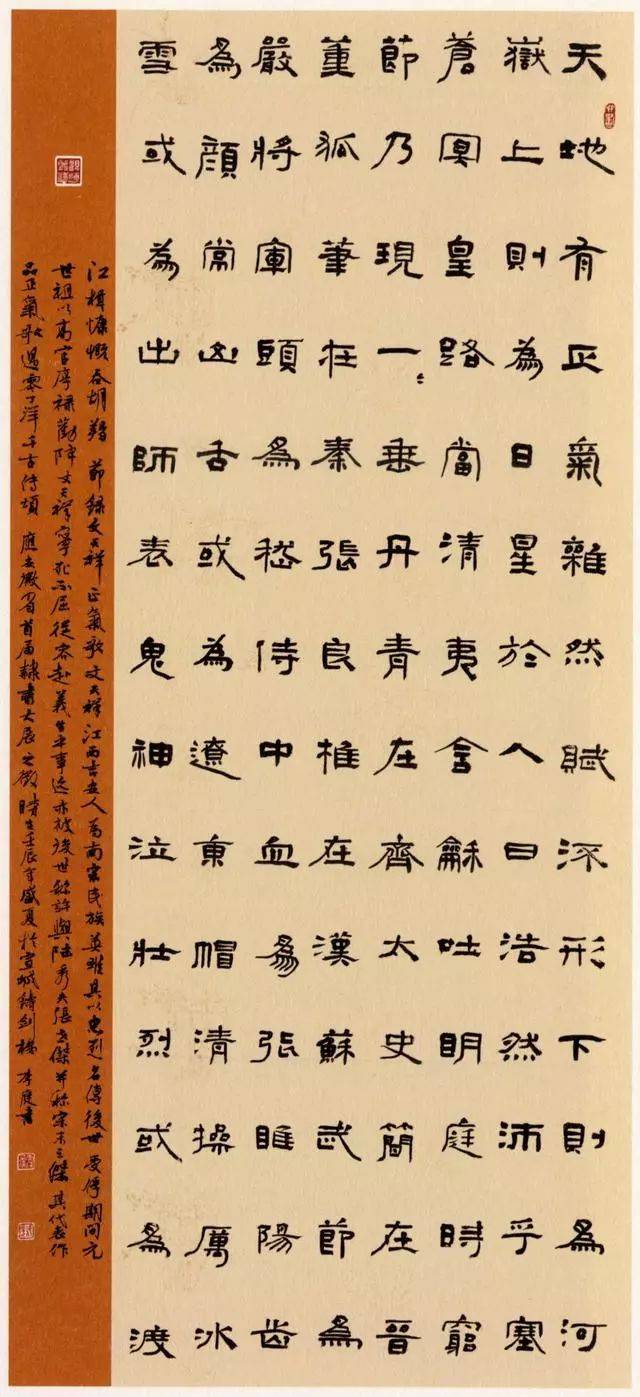 天地有正氣雜然賦流形下則為河
嶽上則為日星於人曰浩然沛乎塞
蒼冥皇路當清夷含龢吐明庭時窮
節乃現一〻垂丹青在齊太史簡在晉
董狐筆在秦張良椎在漢蘇武節為
嚴將軍頭為嵇侍中血為張睢陽齒
為顏常山舌或為遼東帽清操厲冰
雪或為出師表鬼神泣壯烈或為渡
江楫慷慨吞胡羯 節錄文天祥正氣歌 文天祥江西吉安人為南宋民族英雄其以忠烈名傳後世受俘期間元
世祖以高官厚祿勸降文天祥寧死不屈從容赴義生平事迹亦被後世稱許與陸秀夫張世傑并稱宋末三傑其代表作
品正氣歌過零丁洋千古傳頌 應安徽省首屆隸書大展之徵時在壬辰年盛夏於宣城鑄劍樓 李庭書